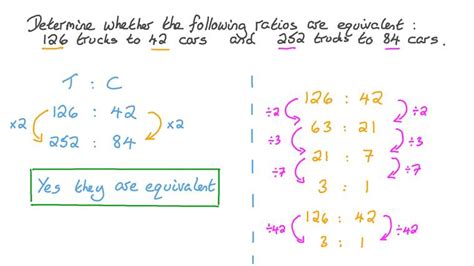 Determine whether the following ratios are equivalent :
126 trucks to 42 cars and 252 trucks to 84 cars.
T : C
126 : 42
×2 ×2
252 : 84
Yes they are equivalent
126 : 42
÷2 ÷2
63 : 21
÷3 ÷3
21 : 7
÷7 ÷7
3 : 1
126 : 42
÷42 ÷42
3 : 1